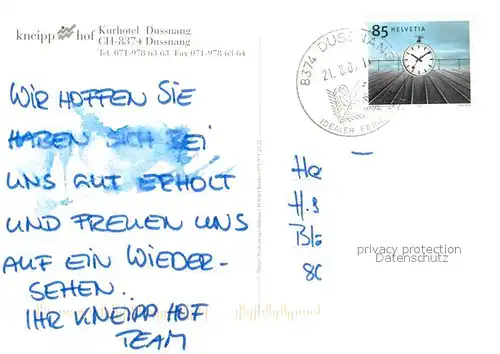 kneipp hof Kurhotel Dussnang
CH-8374 Dussnang
Tel. 071-978 63 63 Fax 071-978 63 64
85 HELVETIA
8374 DUSSNANG
21. 8.0
IDEALER FERI
WIR HOFFEN SIE
HABEN SICH BEI
UNS GUT ERHOLT
UND FREUEN UNS
AUF EIN WIEDER-
SEHEN.
IHR KNEIPP HOF
TEAM
He
H.S
Bl
80
privacy protection
Datenschutz